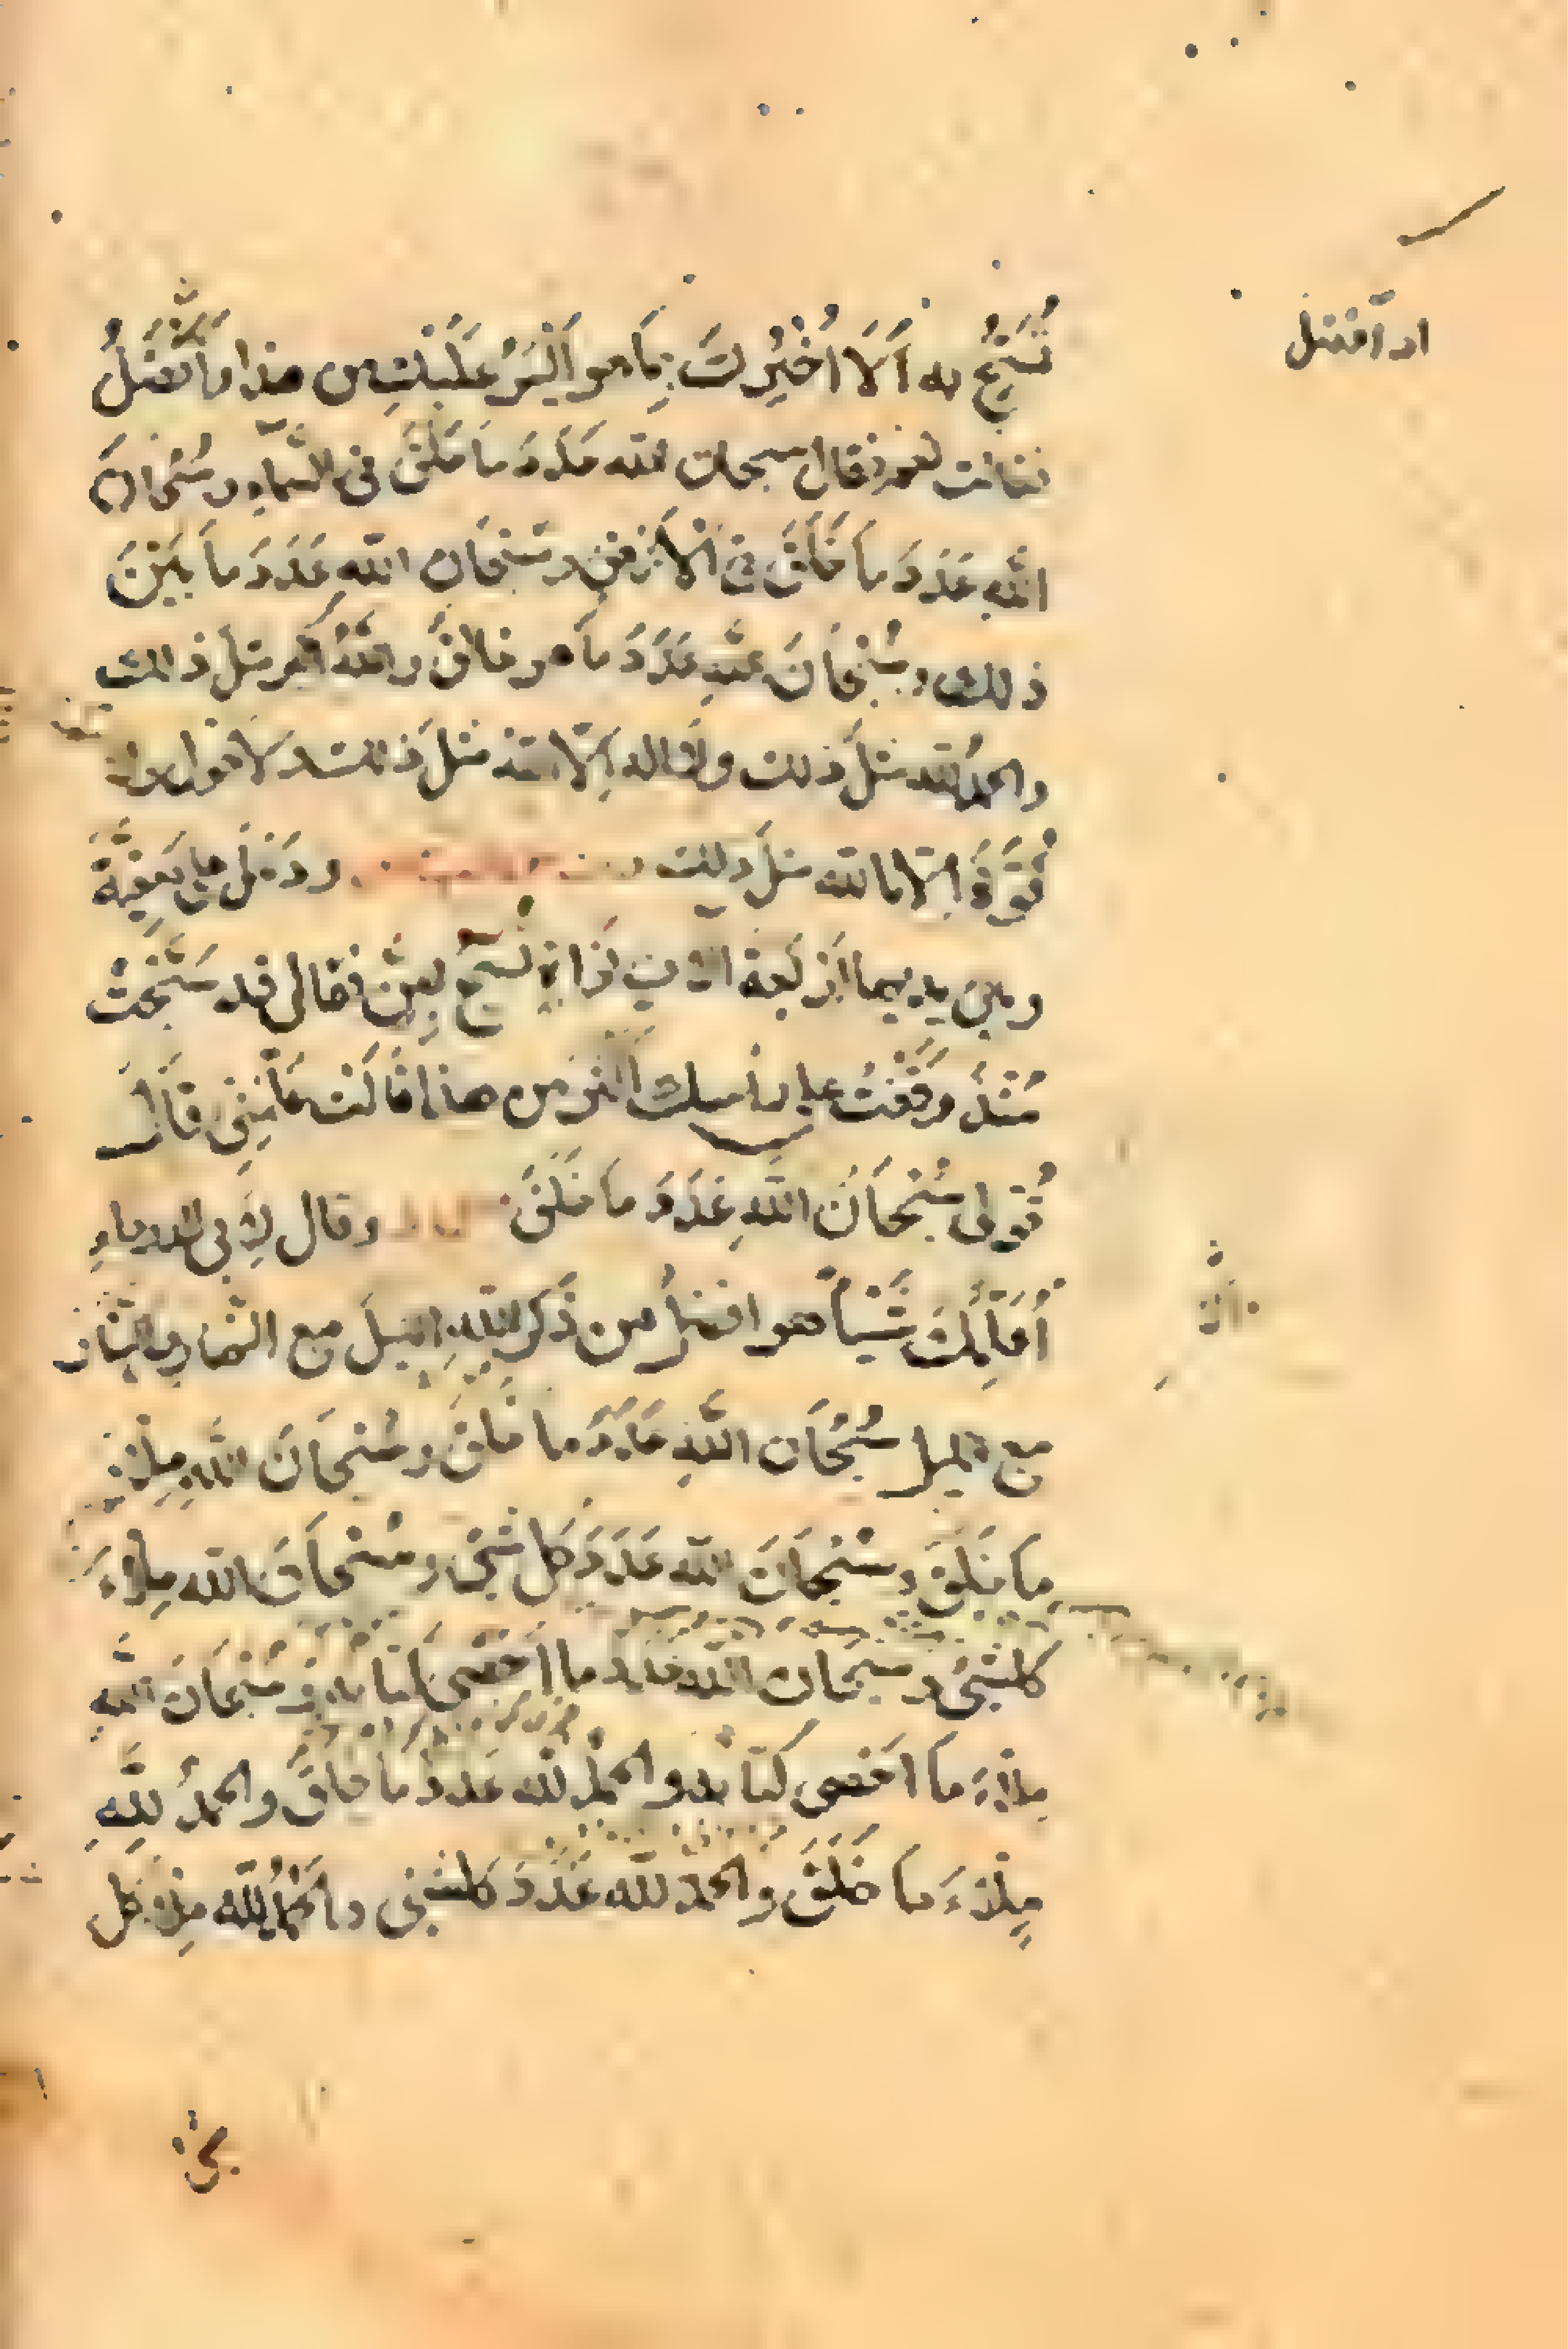 او أفضل
تُسَبِّحُ به اَلَا اُخْبِرُكَ بِمَا هو اَيْسَرُ عَلَيْكِ من هذا وأفضلُ
فقالت نعم فقال سبحان الله عَدَدَ ما خَلَقَ في السَّماءِ وسُبْحان
اللهِ عَدَدَ ما خَلَقَ في الْأَرْضِ وسُبْحَان اللهِ عَدَدَ ما بَيْنَ
ذلك وسُبْحَانَ اللهِ عَدَدَ مَا هو خالقٌ واللهُ اكبر مثلَ ذلك
والحمدُ لله مثلَ ذلك ولا اله اِلّا الله مثلَ ذلك ولا حول ولا
قُوَّةَ اِلّا بالله مثلَ ذلك ودَخَلَ على صَفِيَّةَ
وبين يديها اَرْبَعة الاف نَوَاةٍ تُسَبِّحُ بِهِنَّ فقال قد سَبَّحْتُ
مُنْذُ وَقَفْتُ على رأسك اكثرَ من هذا قالت عَلِّمْنِي قَالَ
قُولي سُبْحَانَ اللهِ عَدَدَ ما خَلَقَ وقال لِأَبي الدرداءِ
أُعَلِّمُكَ شَيْئاً هو افضلُ من ذِكرِ اللهِ الليلَ مع النهارِ والنهارَ
مع الليل سُبْحَان اللهِ عَدَدَ ما خَلَقَ وسُبْحَانَ اللهِ مِلْأَ
ما خَلَقَ وسُبْحَانَ الله عَدَدَ كل شَيْءٍ وسُبْحَانَ الله مِلْأَ
كلشَيْءٍ وسبحان الله عدد ما اَحْصَى كتابه وسُبْحَانَ اللهِ
مِلْأَ مَا اَحْصى كتابُه والحمدُ لله عَدَدَ مَا خَلَقَ والحمدُ للهِ
مِلْأَ ما خَلَقَ والحمدُ لله عَدَدَ كلشَيْءٍ والحَمْدُ لله مِلْأَ كل